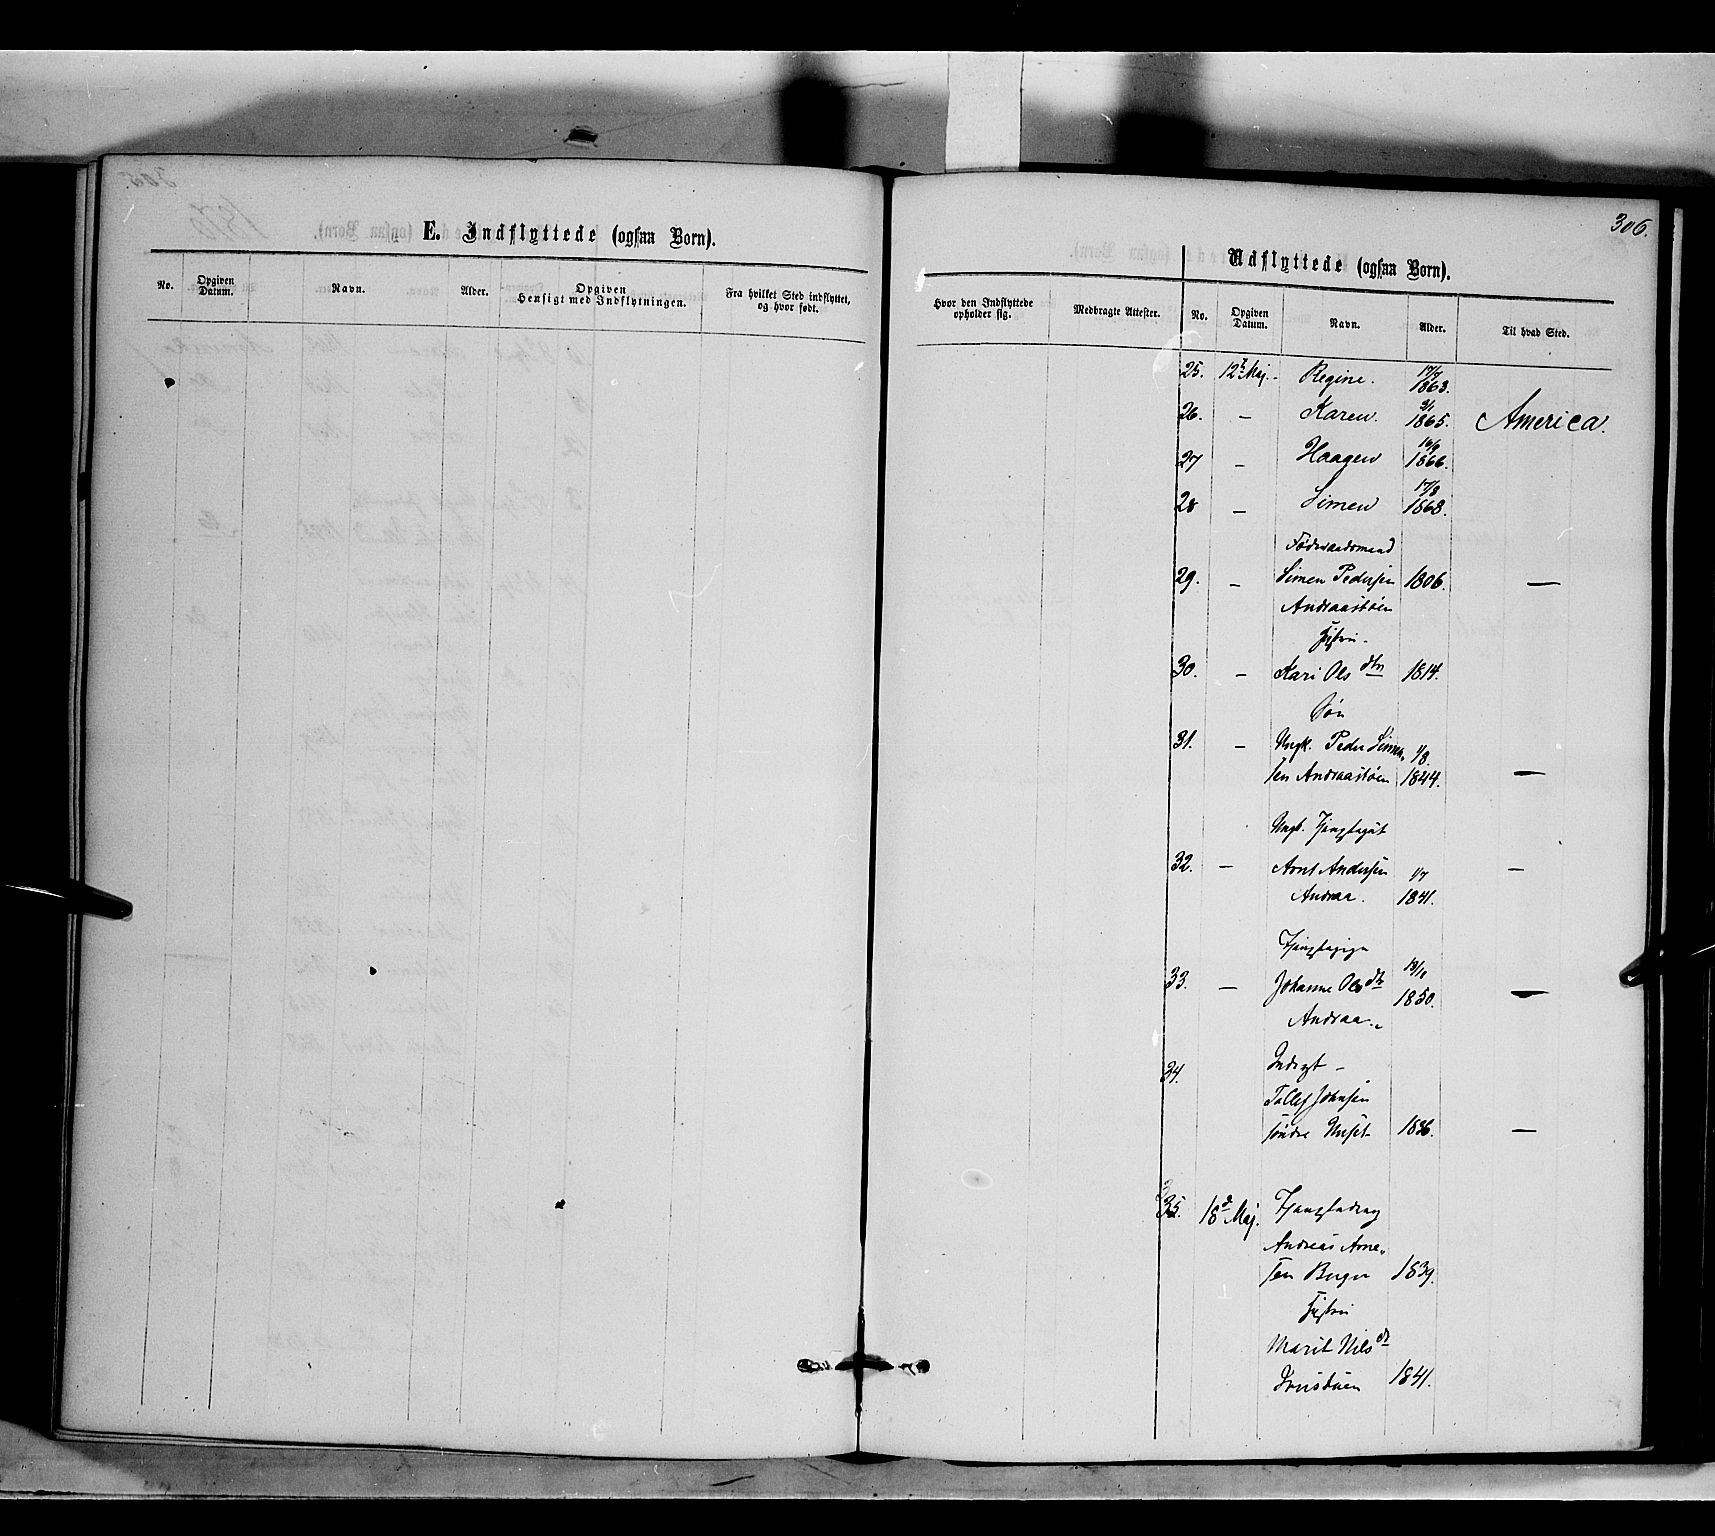 306.
E. Indflyttede (ogsaa Born).
No.
Opgiven Datum.
Navn.
Alder.
Opgiven Hensigt med Indflytningen.
Fra hvilket Sted indflyttet, og hvor født.
Hvor den Indflyttede opholder sig.
Medbragte Attester.
Udflyttede (ogsaa Born).
No.
Opgiven Datum.
Navn.
Alder.
Til hvad Sted.
25. 12te Maj. - Regine. 17/7 1863.
26. - Karen. 2/1 1865. America.
27 - Haagen 16/9 1866.
28 - Simen 17/8 1868.
Føderaadsmand
29. - Simen Pedersen 1806. -
Andraastøen
Hustru.
30. - Kari Olsdtr 1814.
Søn
31. - Ungk. Peder Simen- 1/8
sen Andraastøen 1844. -
Ungk.
32. - Arnt Andersen 1/7 -
Andraa. 1841.
33. - Johanne Olsdtr 1850. -
Andraa.
34. Inderst -
Tollef Johnsen
søndre 1836. -
35. 18de Maj.
Andreas Arne-
sen 1839.
Hustru
Marit Nilsdr
1841.